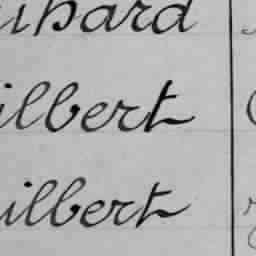 uhard
ilbert
uilbert